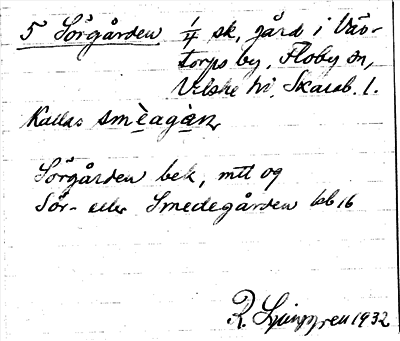 5 Sörgården 1/4 sk, gård i Väs-
torps by, Floby sn,
Vilske hd, Skarab. l.
Kallas smèagàn
Sörgården bek, mtl og
Sör- eller Smedegården kb 16
R. Ljunggren 1932